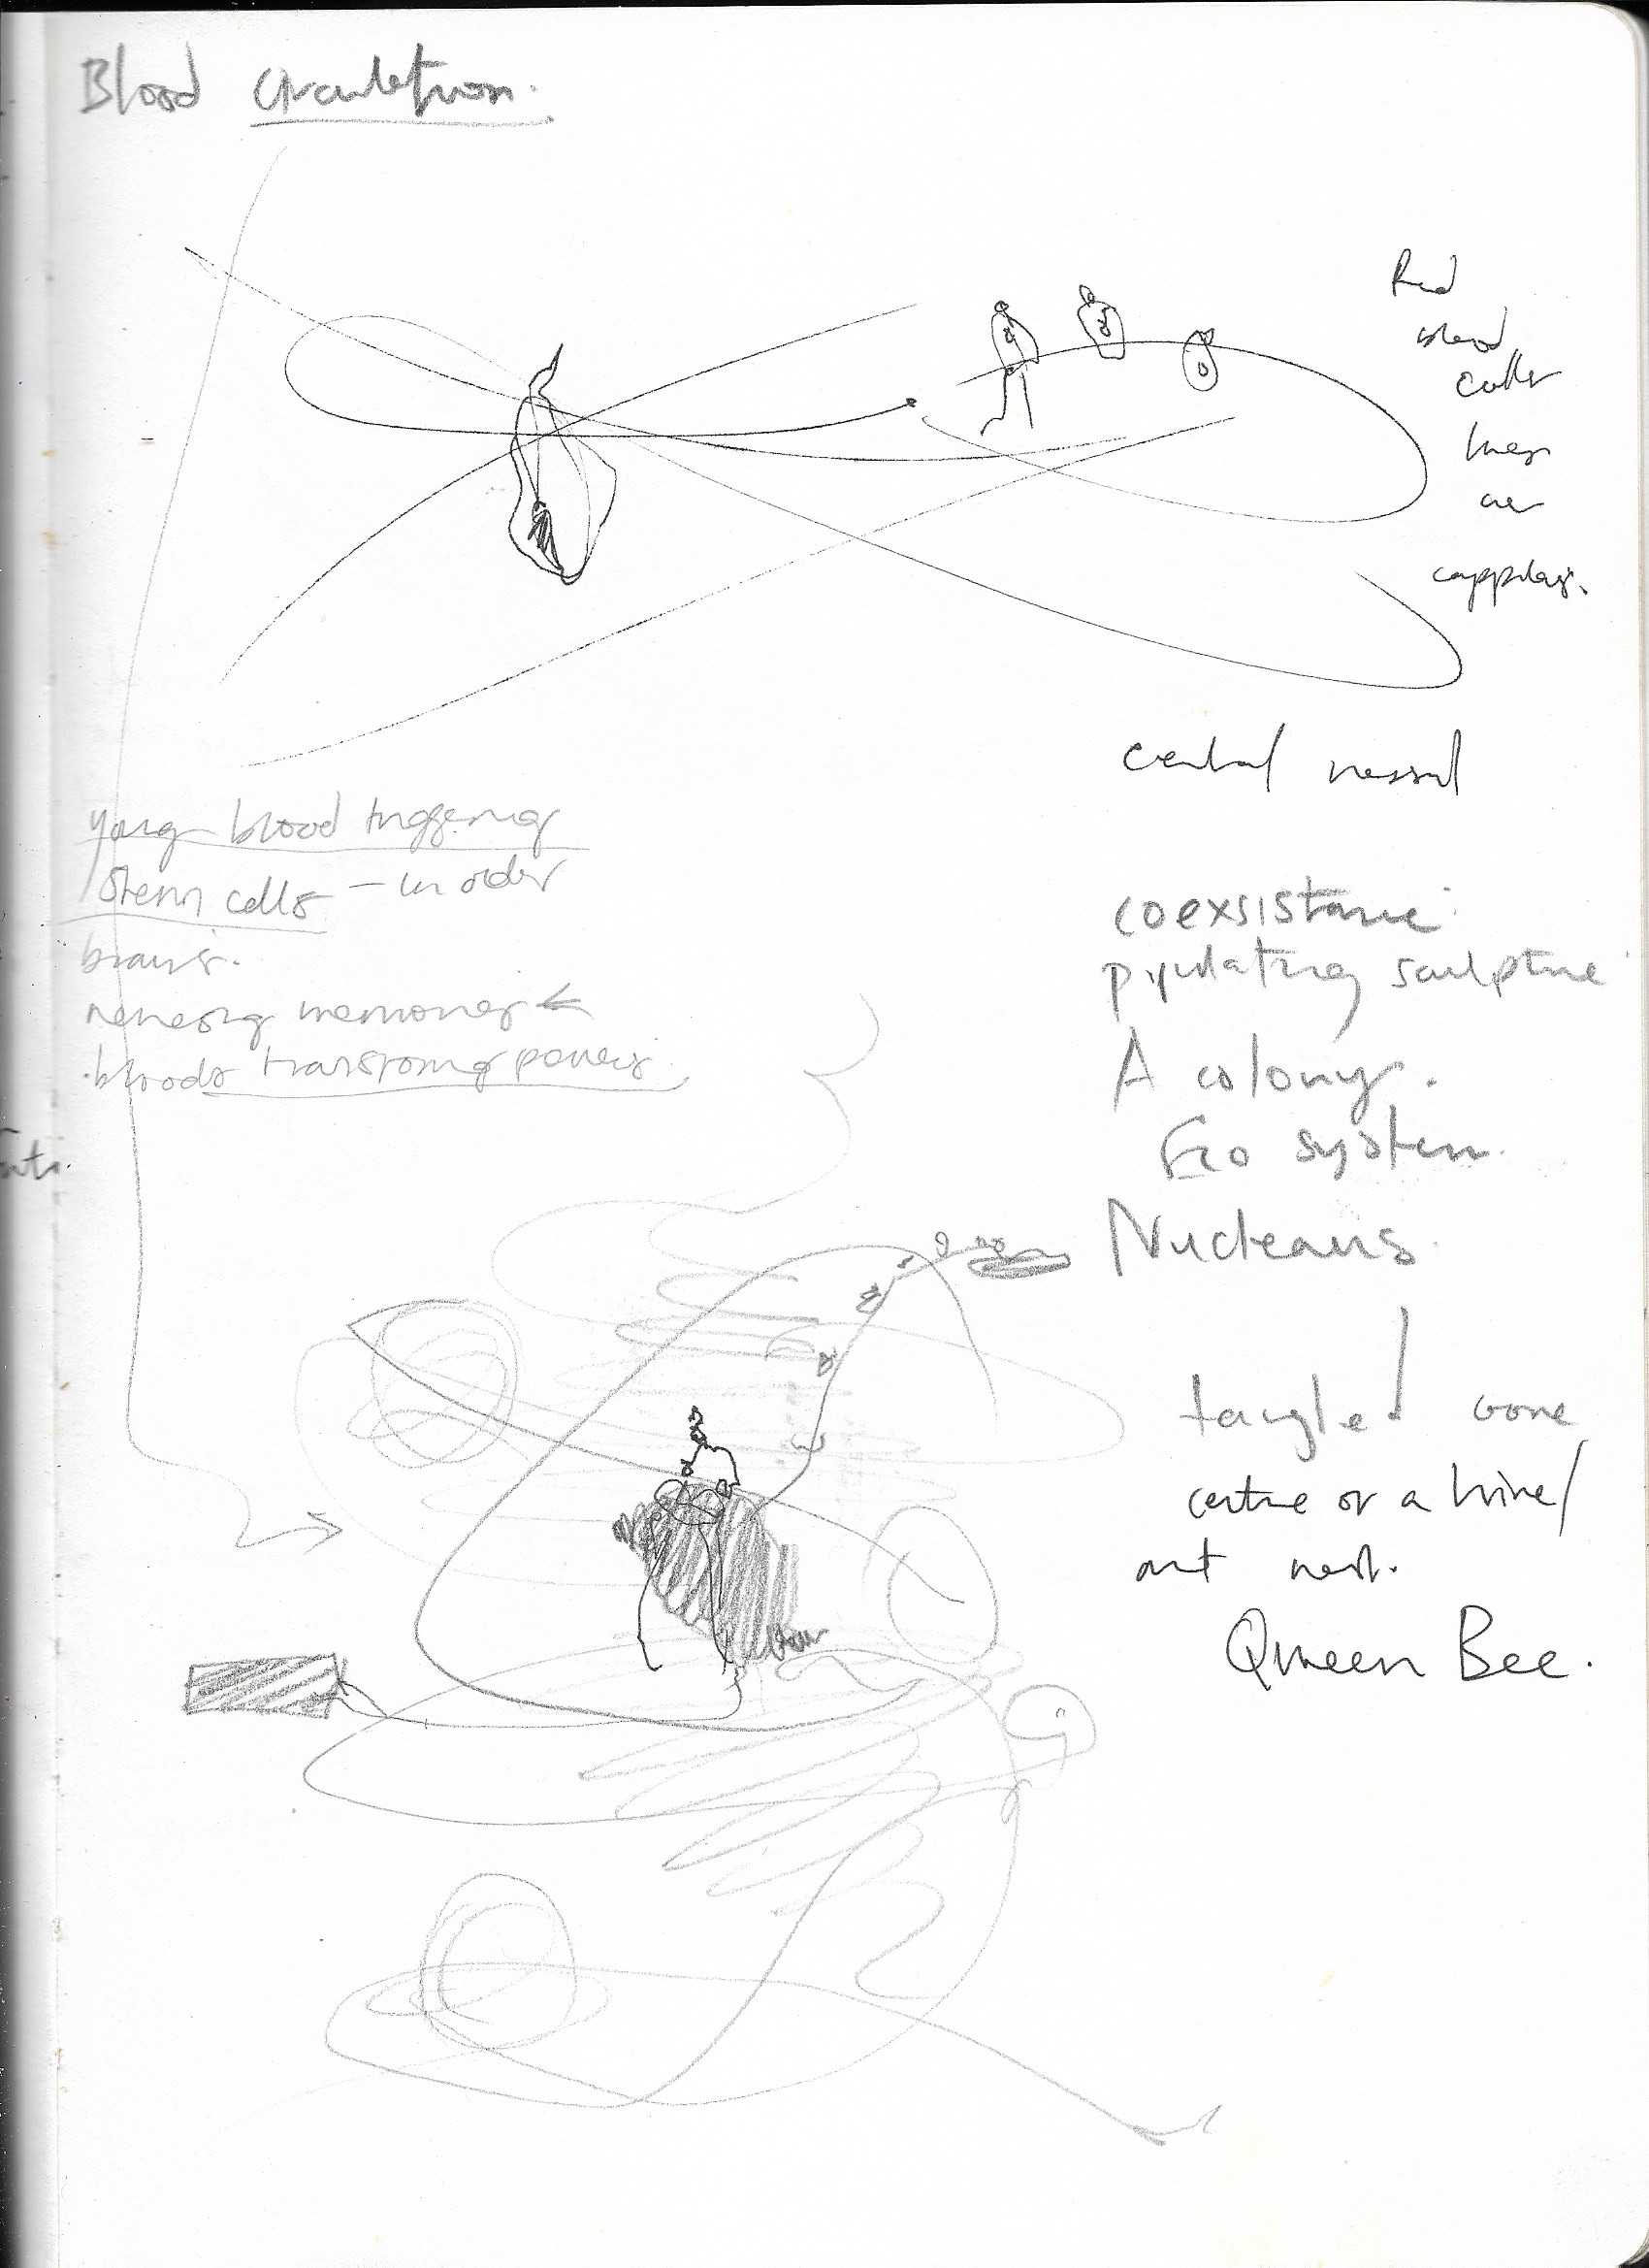 Blood Circulation.
Red
blood
cells
they
are
central vessel
young blood triggering
stem cells – in older
brains.
renewing memories ←
bloods transforming powers.
coexsistance
pulating sculpture
A colony.
Eco system.
Nucleaus
tangled
centre of a hive/
ant nest.
Queen Bee.